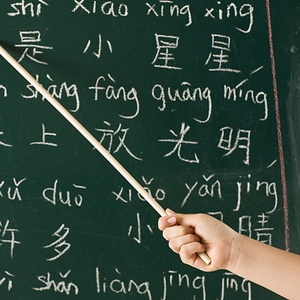 shì xiǎo xīng xīng
是 小 星 星
shàng fàng guāng míng
上 放 光 明
xǔ duō xiǎo yǎn jing
许 多 小 睛
shǎn liàng jīng jīng